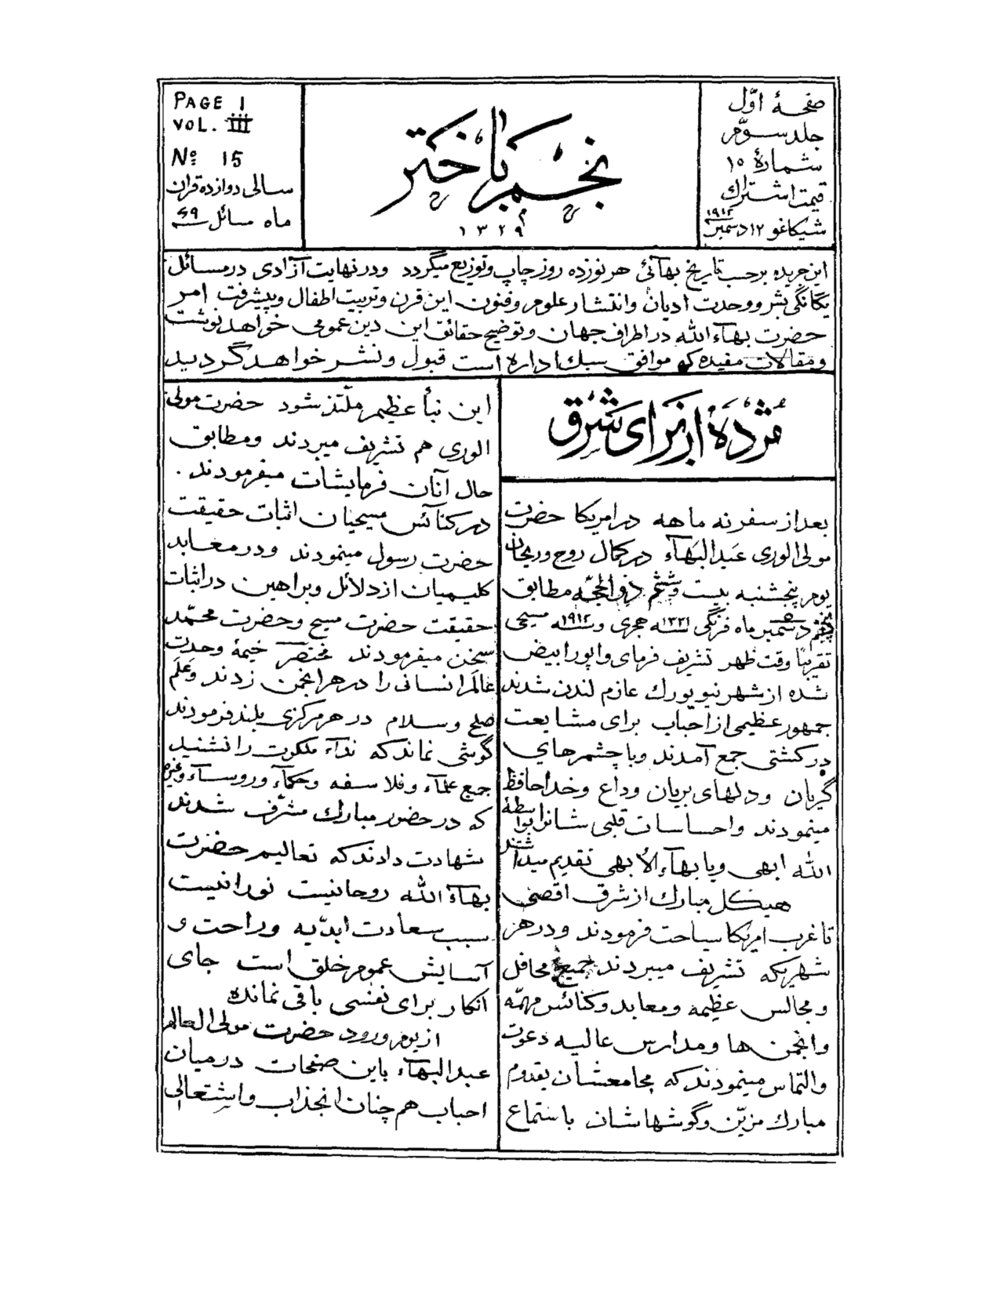 PAGE 1
VOL. III
Nº 15
سالی دوازده قران
ماه مسائل ٦٩
نجم باختر
١٣٢٩
صفحهٔ اوّل
جلد سوّم
شمارهٔ ١٥
قیمت اشتراک
شیکاغو ١٢ دسمبر ١٩١٢
این جریده برحسب تاریخ بهائی هر نوزده روز چاپ و توزیع میگردد ودر نهایت آزادی در مسائل
یگانگی بشر و وحدت ادیان وانتشار علوم وفنون این قرن وتربیت اطفال وپیشرفت امر
حضرت بهآءالله در اطراف جهان وتوضیح حقائق این دین عمومی خواهد نوشت
ومقالات مفیده که موافق سبک اداره است قبول ونشر خواهد گردید
مژدهٔ از برای شرق
بعد از سفر نه ماهه در امریکا حضرت
مولی الوری عبدالبهآء در کمال روح وریحان
یوم پنجشنبه بیست وششم ذی الحجّه مطابق
پنجم دسمبر ماه فرنگی ١٣٣١ سنه هجری وسنه ١٩١٢ مسیحی
تقریبًا وقت ظهر تشریف فرمای واپور ابیض
شده از شهر نیویورک عازم لندن شدند
جمهور عظیمی از احباب برای مشایعت
در کشتی جمع آمدند وبا چشمهای
گریان ودلهای بریان وداع وخدا حافظ
مینمودند واحساسات قلبی شانرا بواسطهٔ
الله ابهی ویا بهآء الأبهی تقدیم میداشتند
هیکل مبارک از شرق اقصی
تا غرب امریکا سیاحت فرمودند ودر هر
شهریکه تشریف میبردند جمیع محافل
ومجالس عظیمه ومعابد وکنائس مهمّه
وانجمن ها ومدارس عالیه دعوت
والتماس مینمودند که مجامعشان بقدوم
مبارک مزیّن وگوشهاشان باستماع
این نبأ عظیم ملتذ شود حضرت مولی
الوری هم تشریف میبردند ومطابق
حال آنان فرمایشات میفرمودند.
در کنائس مسیحیان اثبات حقیقت
حضرت رسول مینمودند ودر معابد
کلیمیان از دلائل وبراهین در اثبات
حقیقت حضرت مسیح وحضرت محمّد
سخن میفرمودند مختصر خیمهٔ وحدت
عالم انسانی را در هر انجمن زدند وعَلَم
صلح وسلام در هر مرکزی بلند فرمودند
گوشی نماند که ندآء ملکوت را نشنید
جمع علمآء وفلاسفه وحکمآء وروسآء وغیره
که در حضور مبارک مشرّف شدند
شهادت دادند که تعالیم حضرت
بهآءالله روحانیست نورانیست
سبب سعادت ابدّیه وراحت و
آسایش عموم خلق است جای
انکار برای نفسی باقی نمانده
از یوم ورود حضرت مولی العالم
عبدالبهآء باین صفحات در میان
احباب هم چنان انجذاب واشتعالی